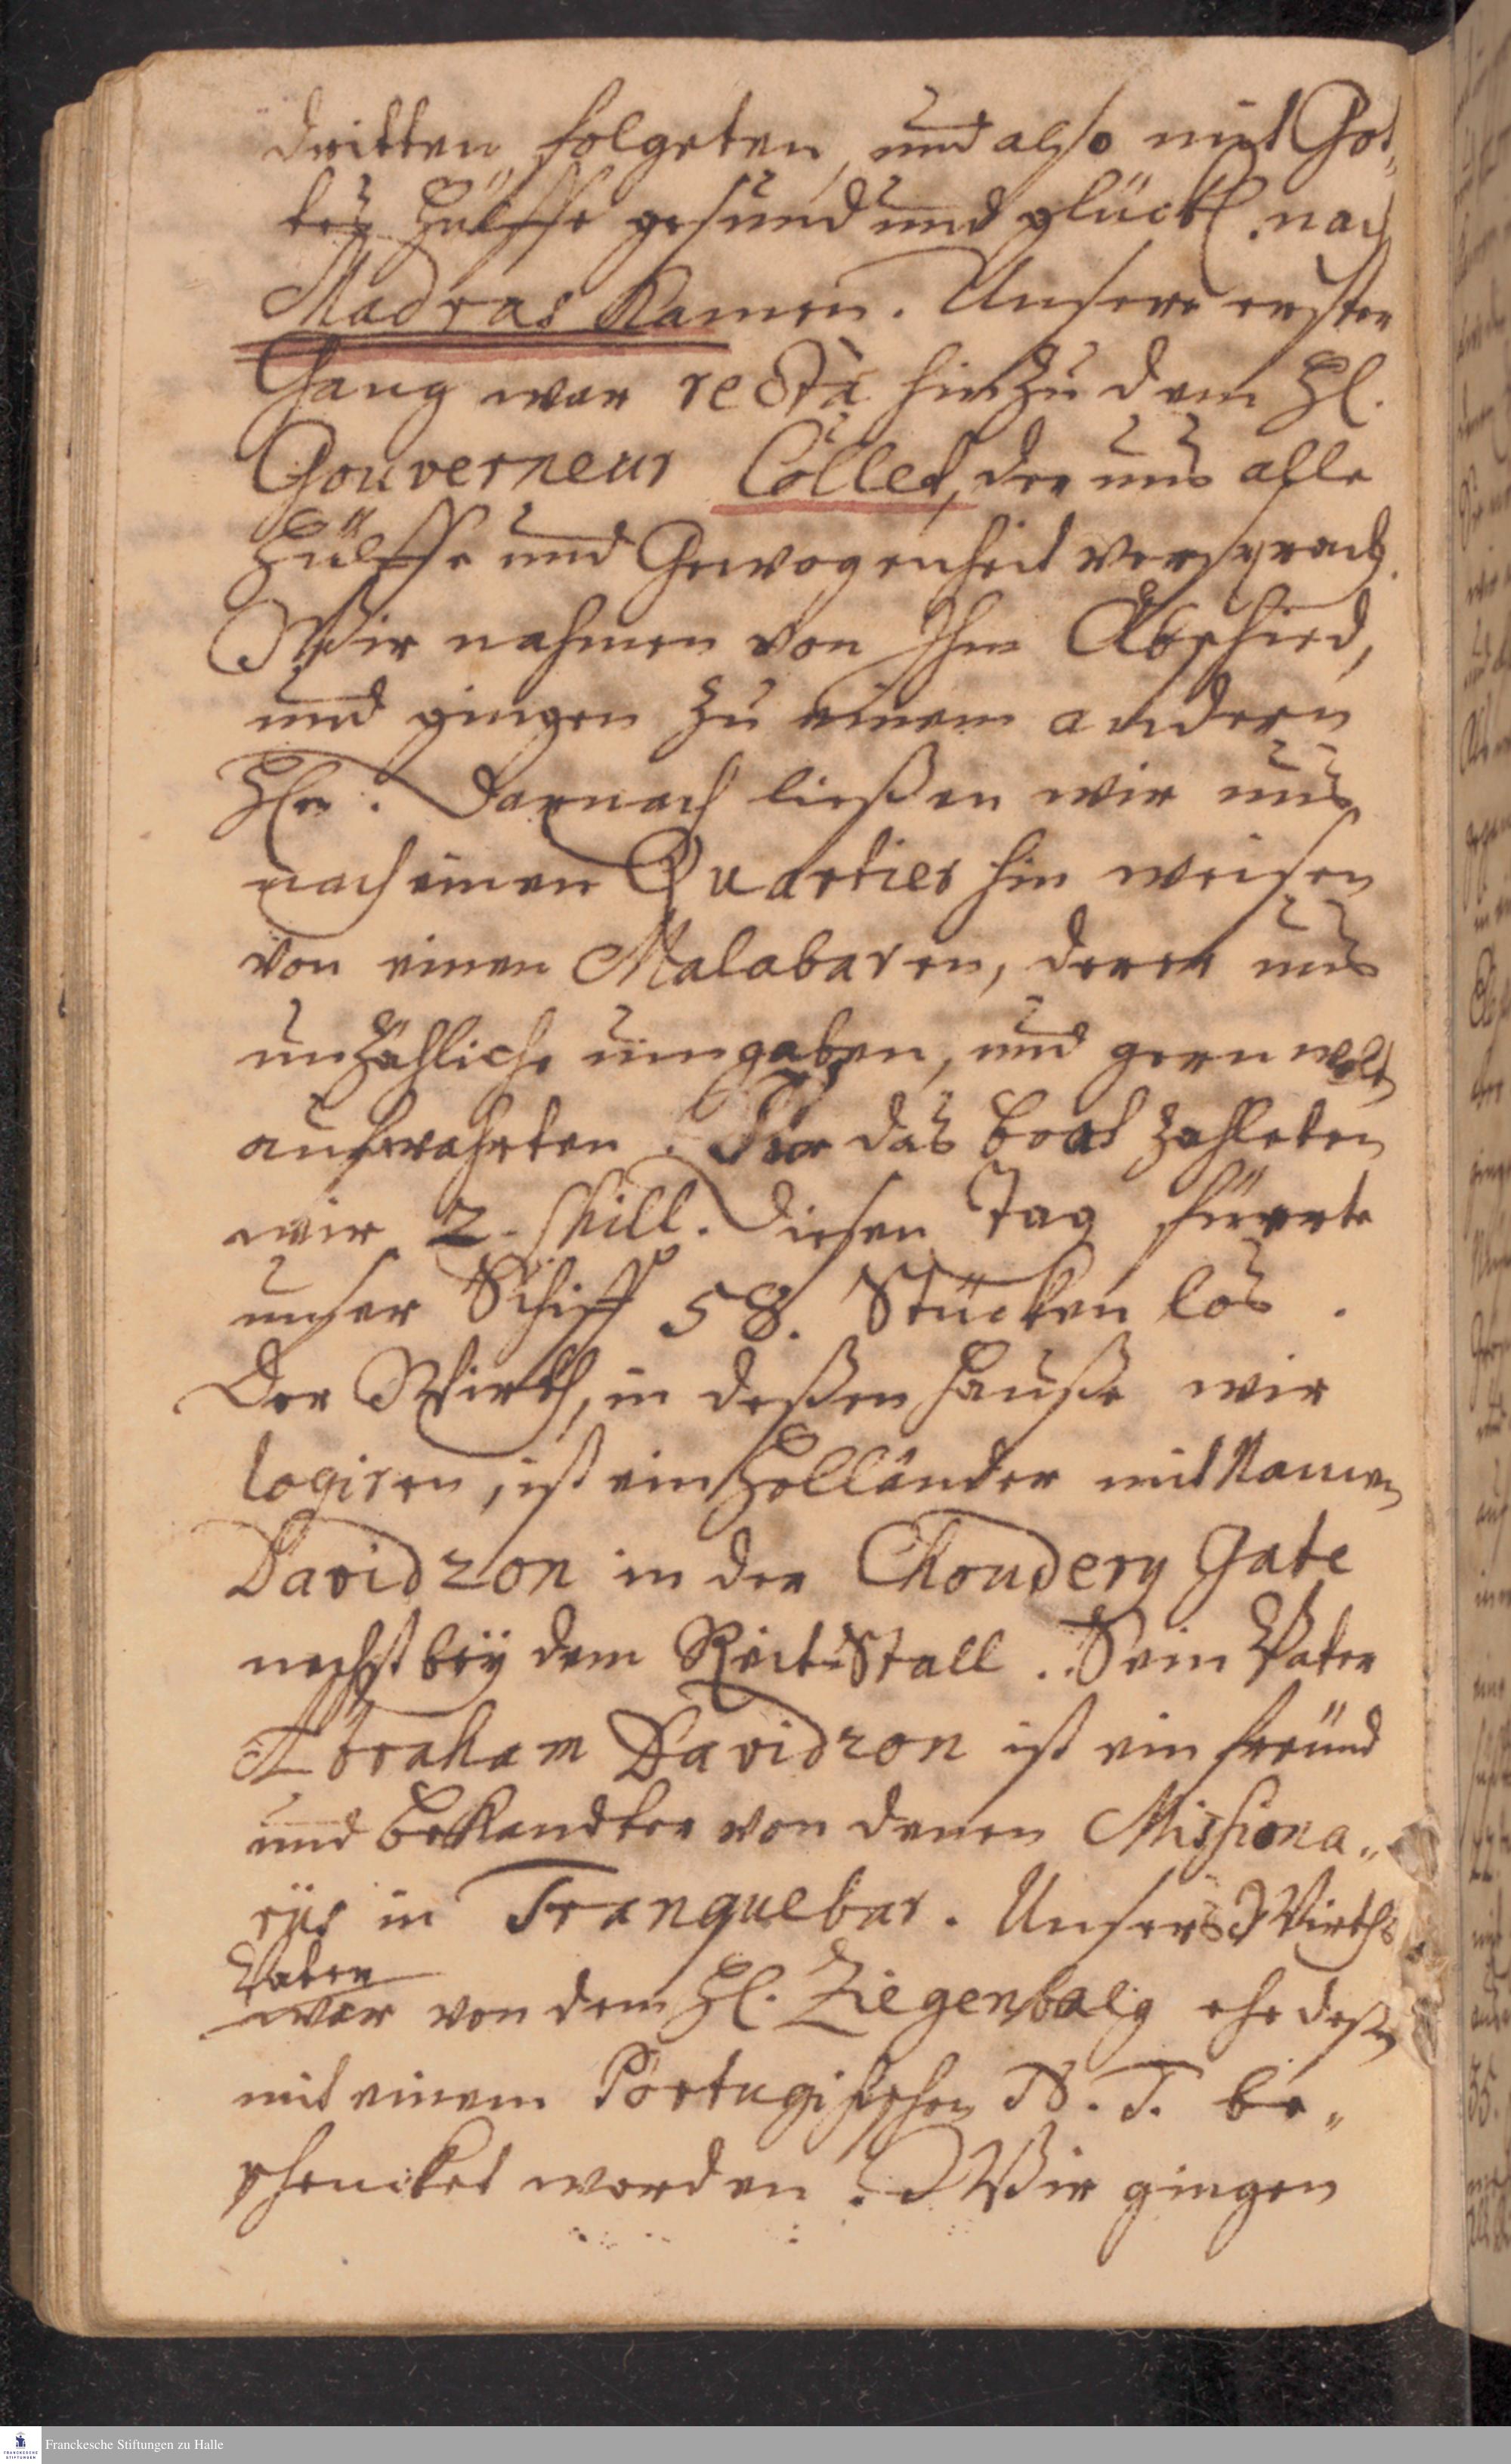 dritten folgeten, und also mit Got„
tes Hülffe gesund und glückl. nach
Madras kamen. Unsere erster
Gang war rectà hin zu dem Hl.
Gouverneur Collet, der uns alle
Hülffe und Gewogenheit versprach.
Wir nahmen von Ihm Abschied,
und gingen zu einem andern
Hln. Darnach ließen wir uns
nach einen Quartier hin weisen
von einen Malabaren, derer uns
unzähliche umgaben, und gern wolt
aufwahrten. Für das Boat zahleten
wir 2. skill. Diesen Tag feürete
unser Schiff 58. Stücken los.
Der Wirth, in deßen Hauße wir
logiren, ist ein Holländer mit Namen
Davidzon in der Choudery Gate
nechst bey dem Reit-Stall. Sein Vater
Abraham Davidzon ist ein freünd
und bekandter von denen Missiona„
rijs in Tranquebar. Unsers Wirths
Vater
war von dem Hl. Ziegenbalg ehe deßen
mit einem Portugisischen N. T. be„
schencket worden. Wir gingen
Franckesche Stiftungen zu Halle